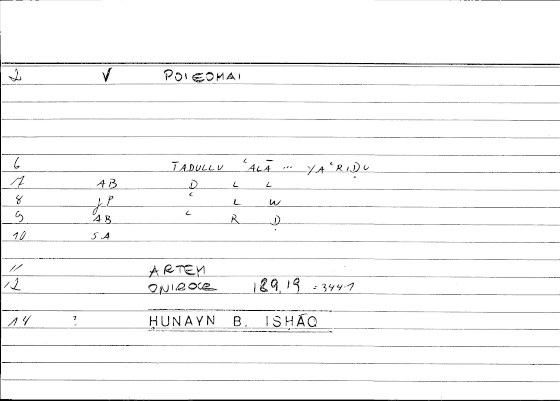 2 V POIEOMAI
6 TADULLU ʿALĀ ... YAʿRIḌU
7 AB D L L
8 jP ʿ L W
9 AB ʿ R Ḍ
10 SA
11 ARTEM
12 ONIROCR 189,19 =344-1
14 ? HUNAYN B. ISHĀQ